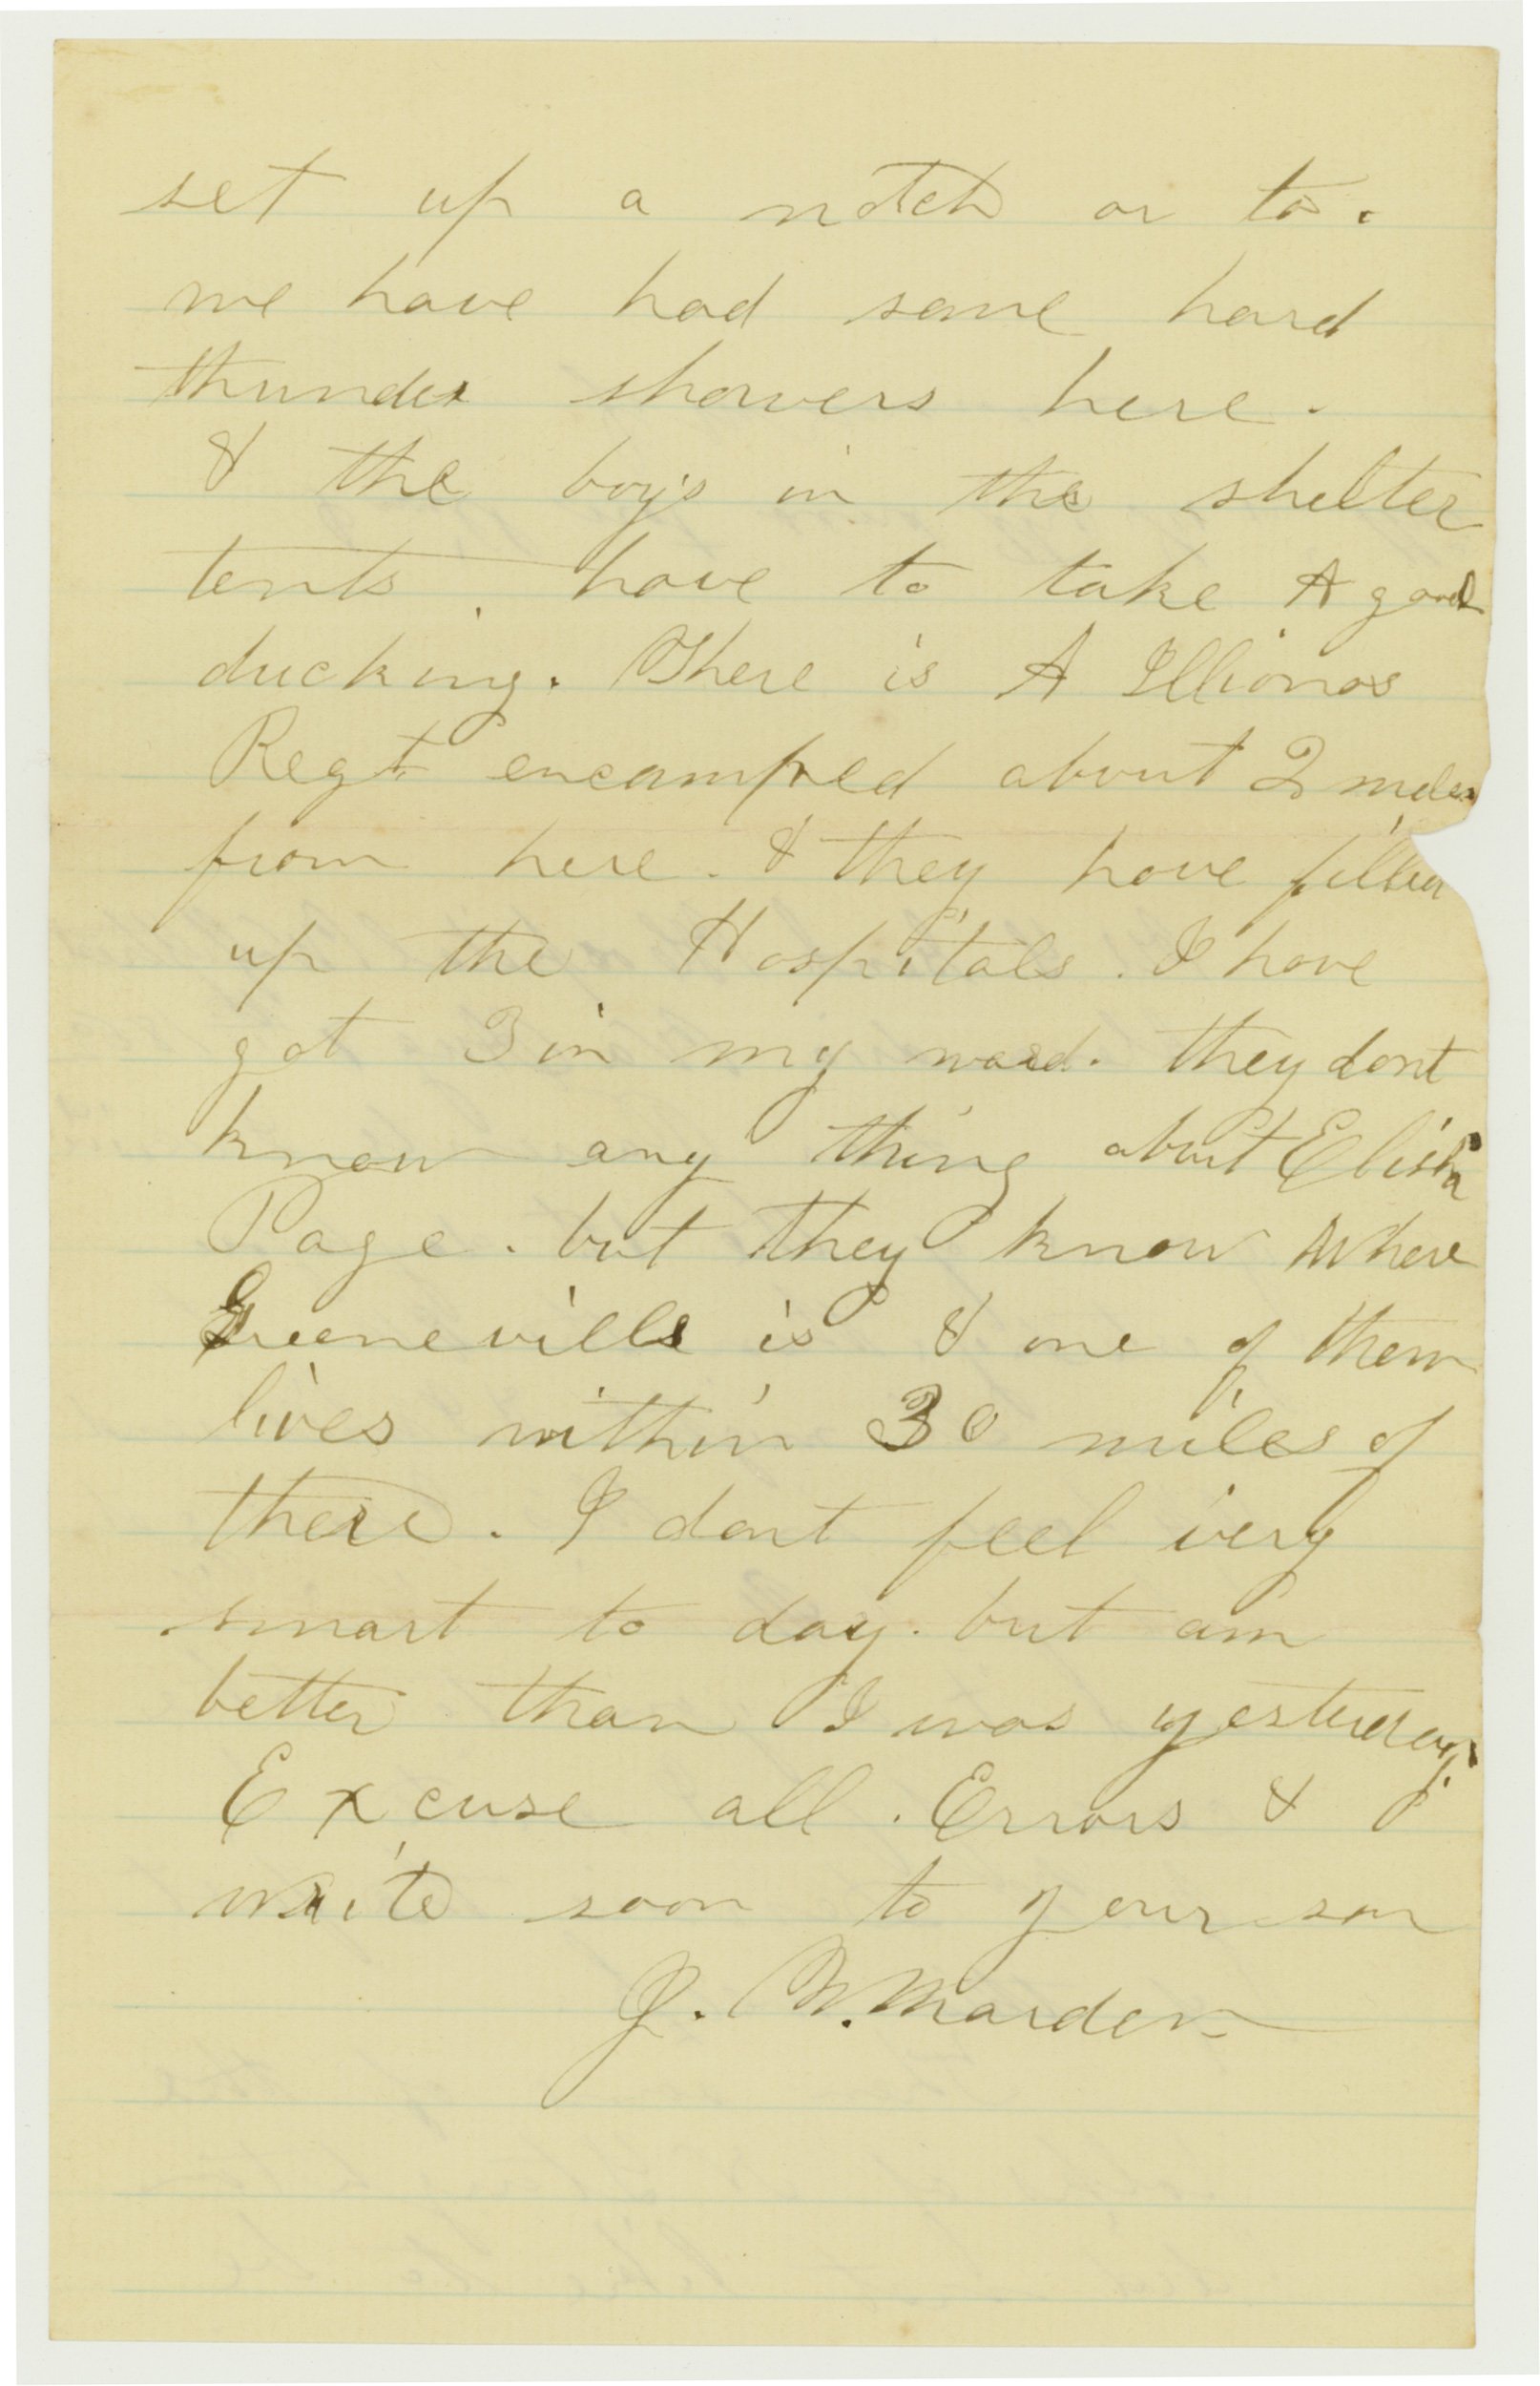 set up a notch or to.
we have had some hard
thunder showers here.
& the boys in the shelter
tents have to take A good
ducking. There is A Illionos
Regt encamped about 2 miles
from here. & they have filled
up the Hospitals. I have
got 3 in my ward. they dont
know any thing about Elisha
Page. but they know Where
Greeneville is & one of them
lives within 30 miles of
there. I dont feel very
smart to day. but am
better than I was yesterday.
Excuse all. Errors &
write soon to your son
J. W. Marden